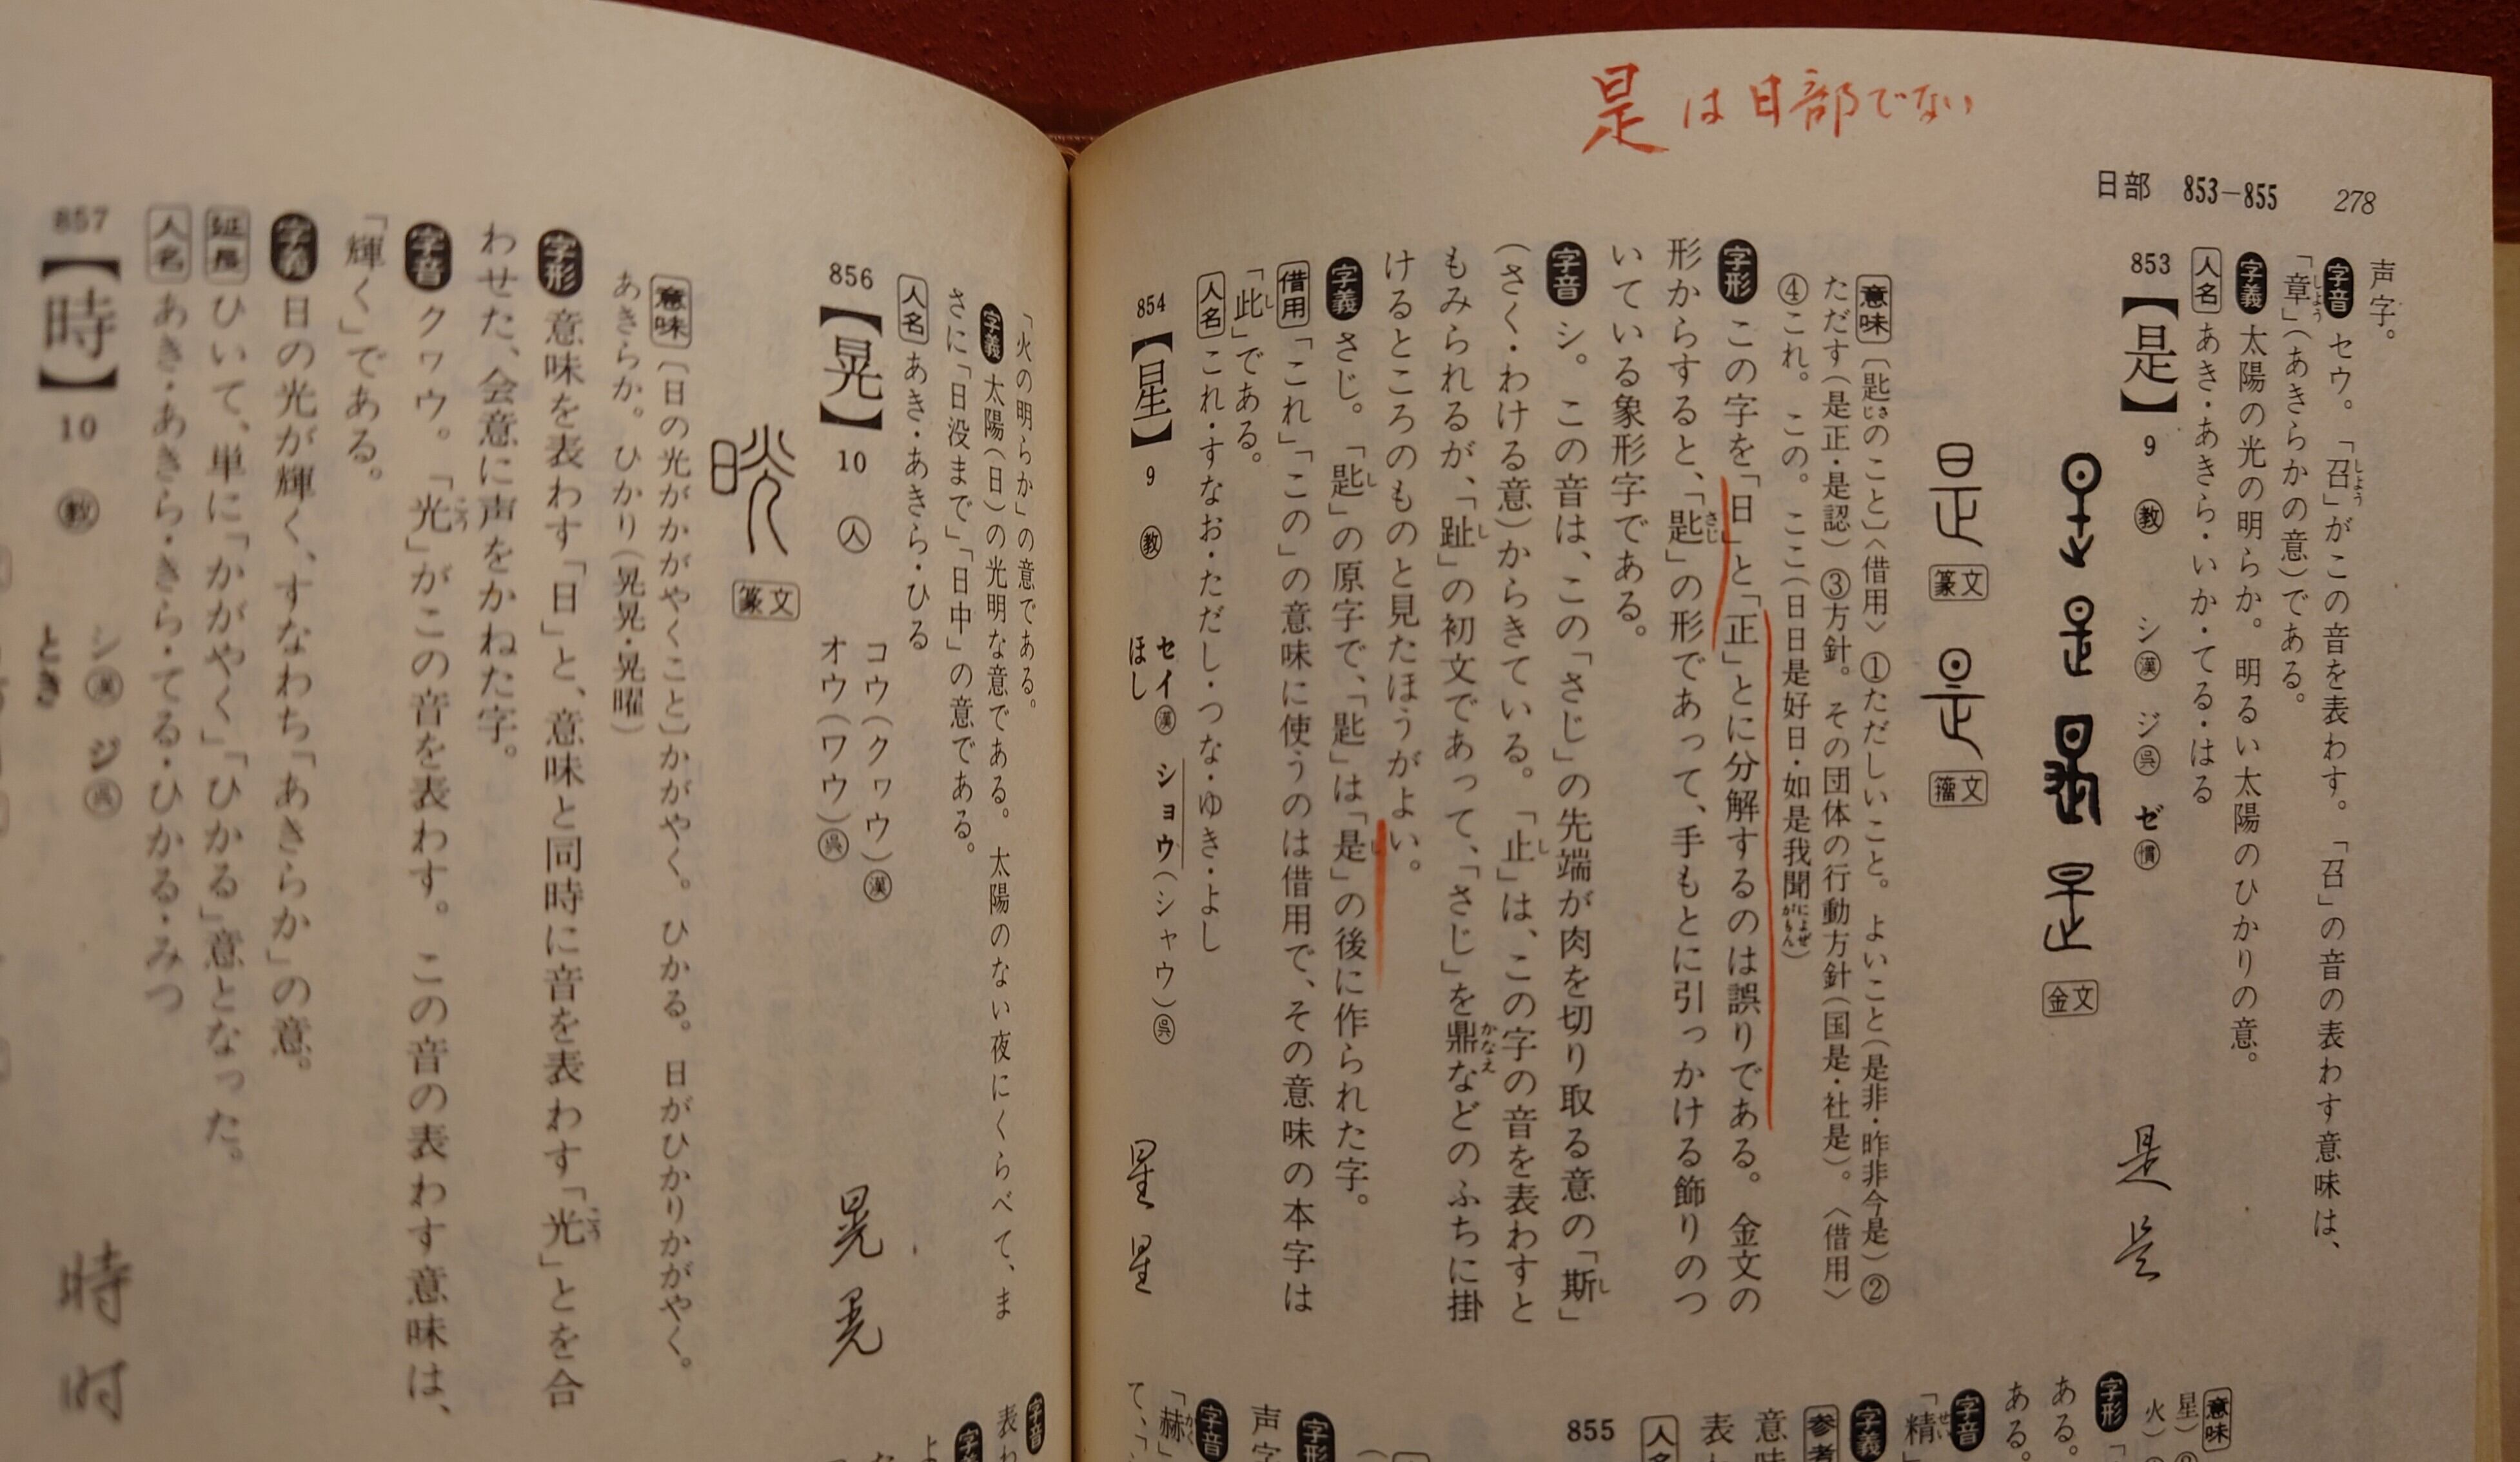 是は日部でない
日部 853―855 278
声字。
字音 セウ。「召」がこの音を表わす。「召」の音の表わす意味は、
「章」(あきらかの意)である。
字義 太陽の光の明らか。明るい太陽のひかりの意。
人名 あき・あきら・いか・てる・はる
853【是】9 教 シ漢 ジ呉 ゼ慣
是 是
金文
篆文 籀文
意味 〔匙のこと〕〈借用〉①ただしいこと。よいこと(是非・昨非今是)②
ただす(是正・是認)③方針。その団体の行動方針(国是・社是)。〈借用〉
④これ。この。ここ(日日是好日・如是我聞)
字形 この字を「日」と「正」とに分解するのは誤りである。金文の
形からすると、「匙」の形であって、手もとに引っかける飾りのつ
いている象形字である。
字音 シ。この音は、この「さじ」の先端が肉を切り取る意の「斯」
(さく・わける意)からきている。「止」は、この字の音を表わすと
もみられるが、「趾」の初文であって、「さじ」を鼎などのふちに掛
けるところのものと見たほうがよい。
字義 さじ。「匙」の原字で、「匙」は「是」の後に作られた字。
借用 「これ」「この」の意味に使うのは借用で、その意味の本字は
「此」である。
人名 これ・すなお・ただし・つな・ゆき・よし
854【星】9 教 セイ漢 ショウ(シャウ)呉
ほし
星 星
意味
星)
火)
字形 「
ある。
ある。
字音
「精」
字義
参考
意味
表わ
人名
855
字形
声字
字音
「赫」
て、「
「火の明らか」の意である。
字義 太陽(日)の光明な意である。太陽のない夜にくらべて、ま
さに「日没まで」「日中」の意である。
人名 あき・あきら・ひる
856【晃】10 人 コウ(クヮウ)漢
オウ(ワウ)呉
晃 晃
篆文
意味 〔日の光がかがやくこと〕かがやく。ひかる。日がひかりかがやく。
あきらか。ひかり(晃晃・晃曜)
字形 意味を表わす「日」と、意味と同時に音を表わす「光」とを合
わせた、会意に声をかねた字。
字音 クヮウ。「光」がこの音を表わす。この音の表わす意味は、
「輝く」である。
字義 日の光が輝く、すなわち「あきらか」の意。
延長 ひいて、単に「かがやく」「ひかる」意となった。
人名 あき・あきら・きら・てる・ひかる・みつ
857【時】10 教 シ漢 ジ呉
とき
時 时
字音
表わ
字義